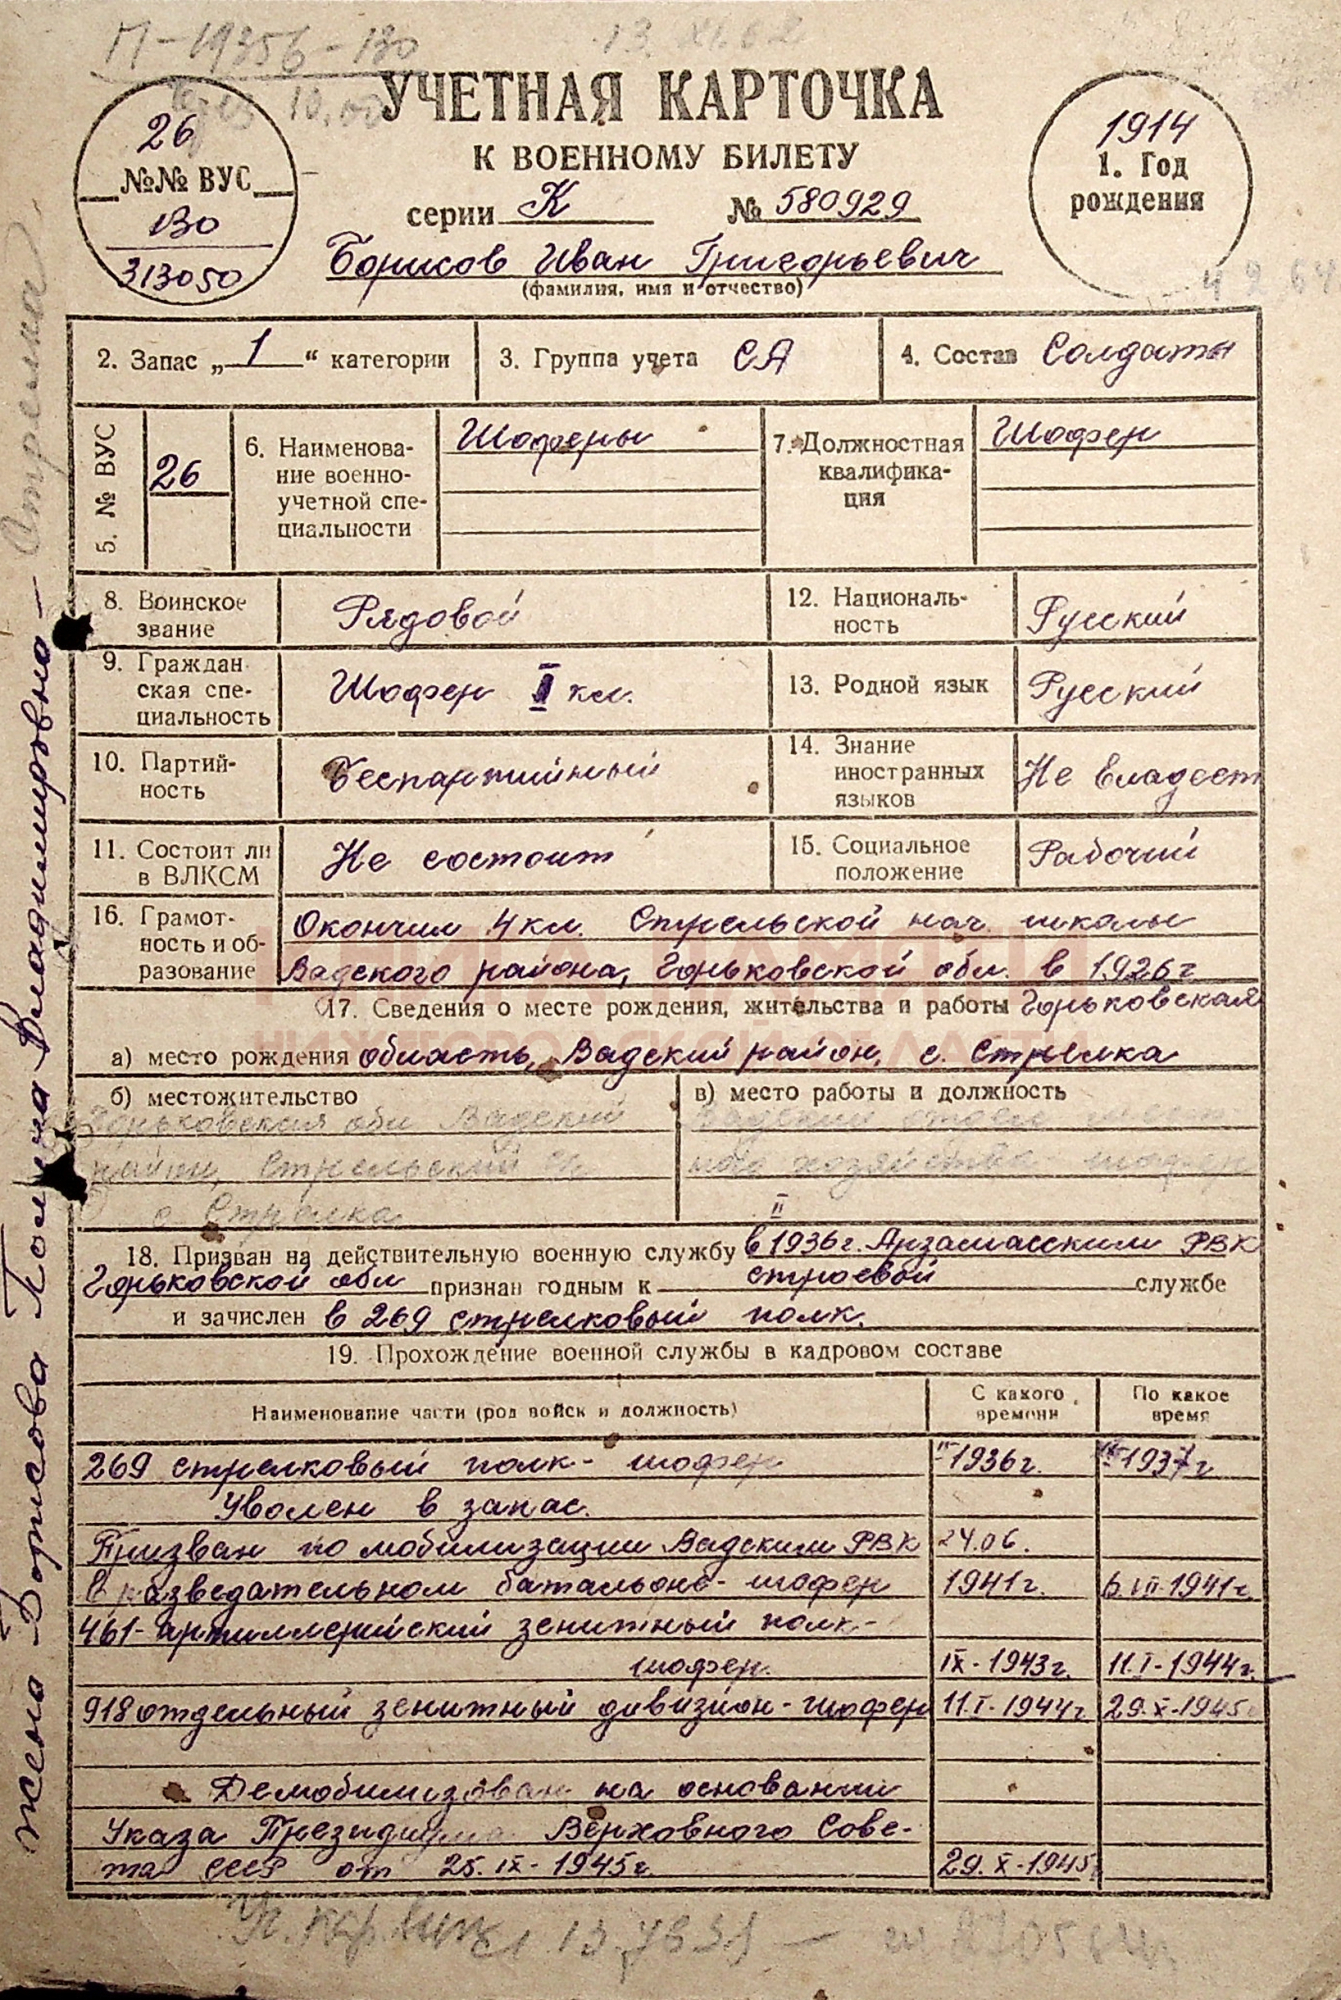 П-1935б-130
13.XI.62
УЧЕТНАЯ КАРТОЧКА
К ВОЕННОМУ БИЛЕТУ
серии К № 580929
26
№№ ВУС
130
313050
1914
1. Год
рождения
Борисов Иван Григорьевич
(фамилия, имя и отчество)
4 9 64
2. Запас „1“ категории
3. Группа учета СА
4. Состав Солдаты
5. № ВУС
26
6. Наименова-
ние военно-
учетной спе-
циальности
Шоферы
7. Должностная
квалифика-
ция
Шофер
8. Воинское
звание
Рядовой
12. Националь-
ность
Русский
9. Граждан
ская спе-
циальность
Шофер II кл.
13. Родной язык
Русский
10. Партий-
ность
Беспартийный
14. Знание
иностранных
языков
Не владеет
11. Состоит ли
в ВЛКСМ
Не состоит
15. Социальное
положение
Рабочий
16. Грамот-
ность и об-
разование
Окончил 4 кл. Стрельской нач. школы
Вадского района, Горьковской обл. в 1926г
17. Сведения о месте рождения, жительства и работы Горьковская
а) место рождения область, Вадский район, с. Стрелка
б) местожительство
Горьковская обл Вадский
район, Стрельский с/с
с Стрелка
в) место работы и должность
Вадский отдел мест-
ного хозяйства шофер
II
18. Призван на действительную военную службу в 1936г. Арзамасским РВК
Горьковской обл признан годным к строевой службе
и зачислен в 269 стрелковый полк.
19. Прохождение военной службы в кадровом составе
Наименование части (род войск и должность)
С какого
времени
По какое
время
269 стрелковый полк - шофер 1936г. 1937г
Уволен в запас.
Призван по мобилизации Вадским РВК 24.06.
в разведательном батальоне - шофер 1941г. 6.VII-1941г.
461-артиллерийский зенитный полк-
шофер. IX-1943г. 11.I-1944г.
918 отдельный зенитный дивизион-шофер 11.I-1944г 29.X-1945г
Демобилизован на основании
Указа Президиума Верховного Сове-
та СССР от 25.IX-1945г. 29.X-1945г
жена Борисова Полина Владимировна -
КНИГА ПАМЯТИ
НИЖЕГОРОДСКОЙ ОБЛАСТИ